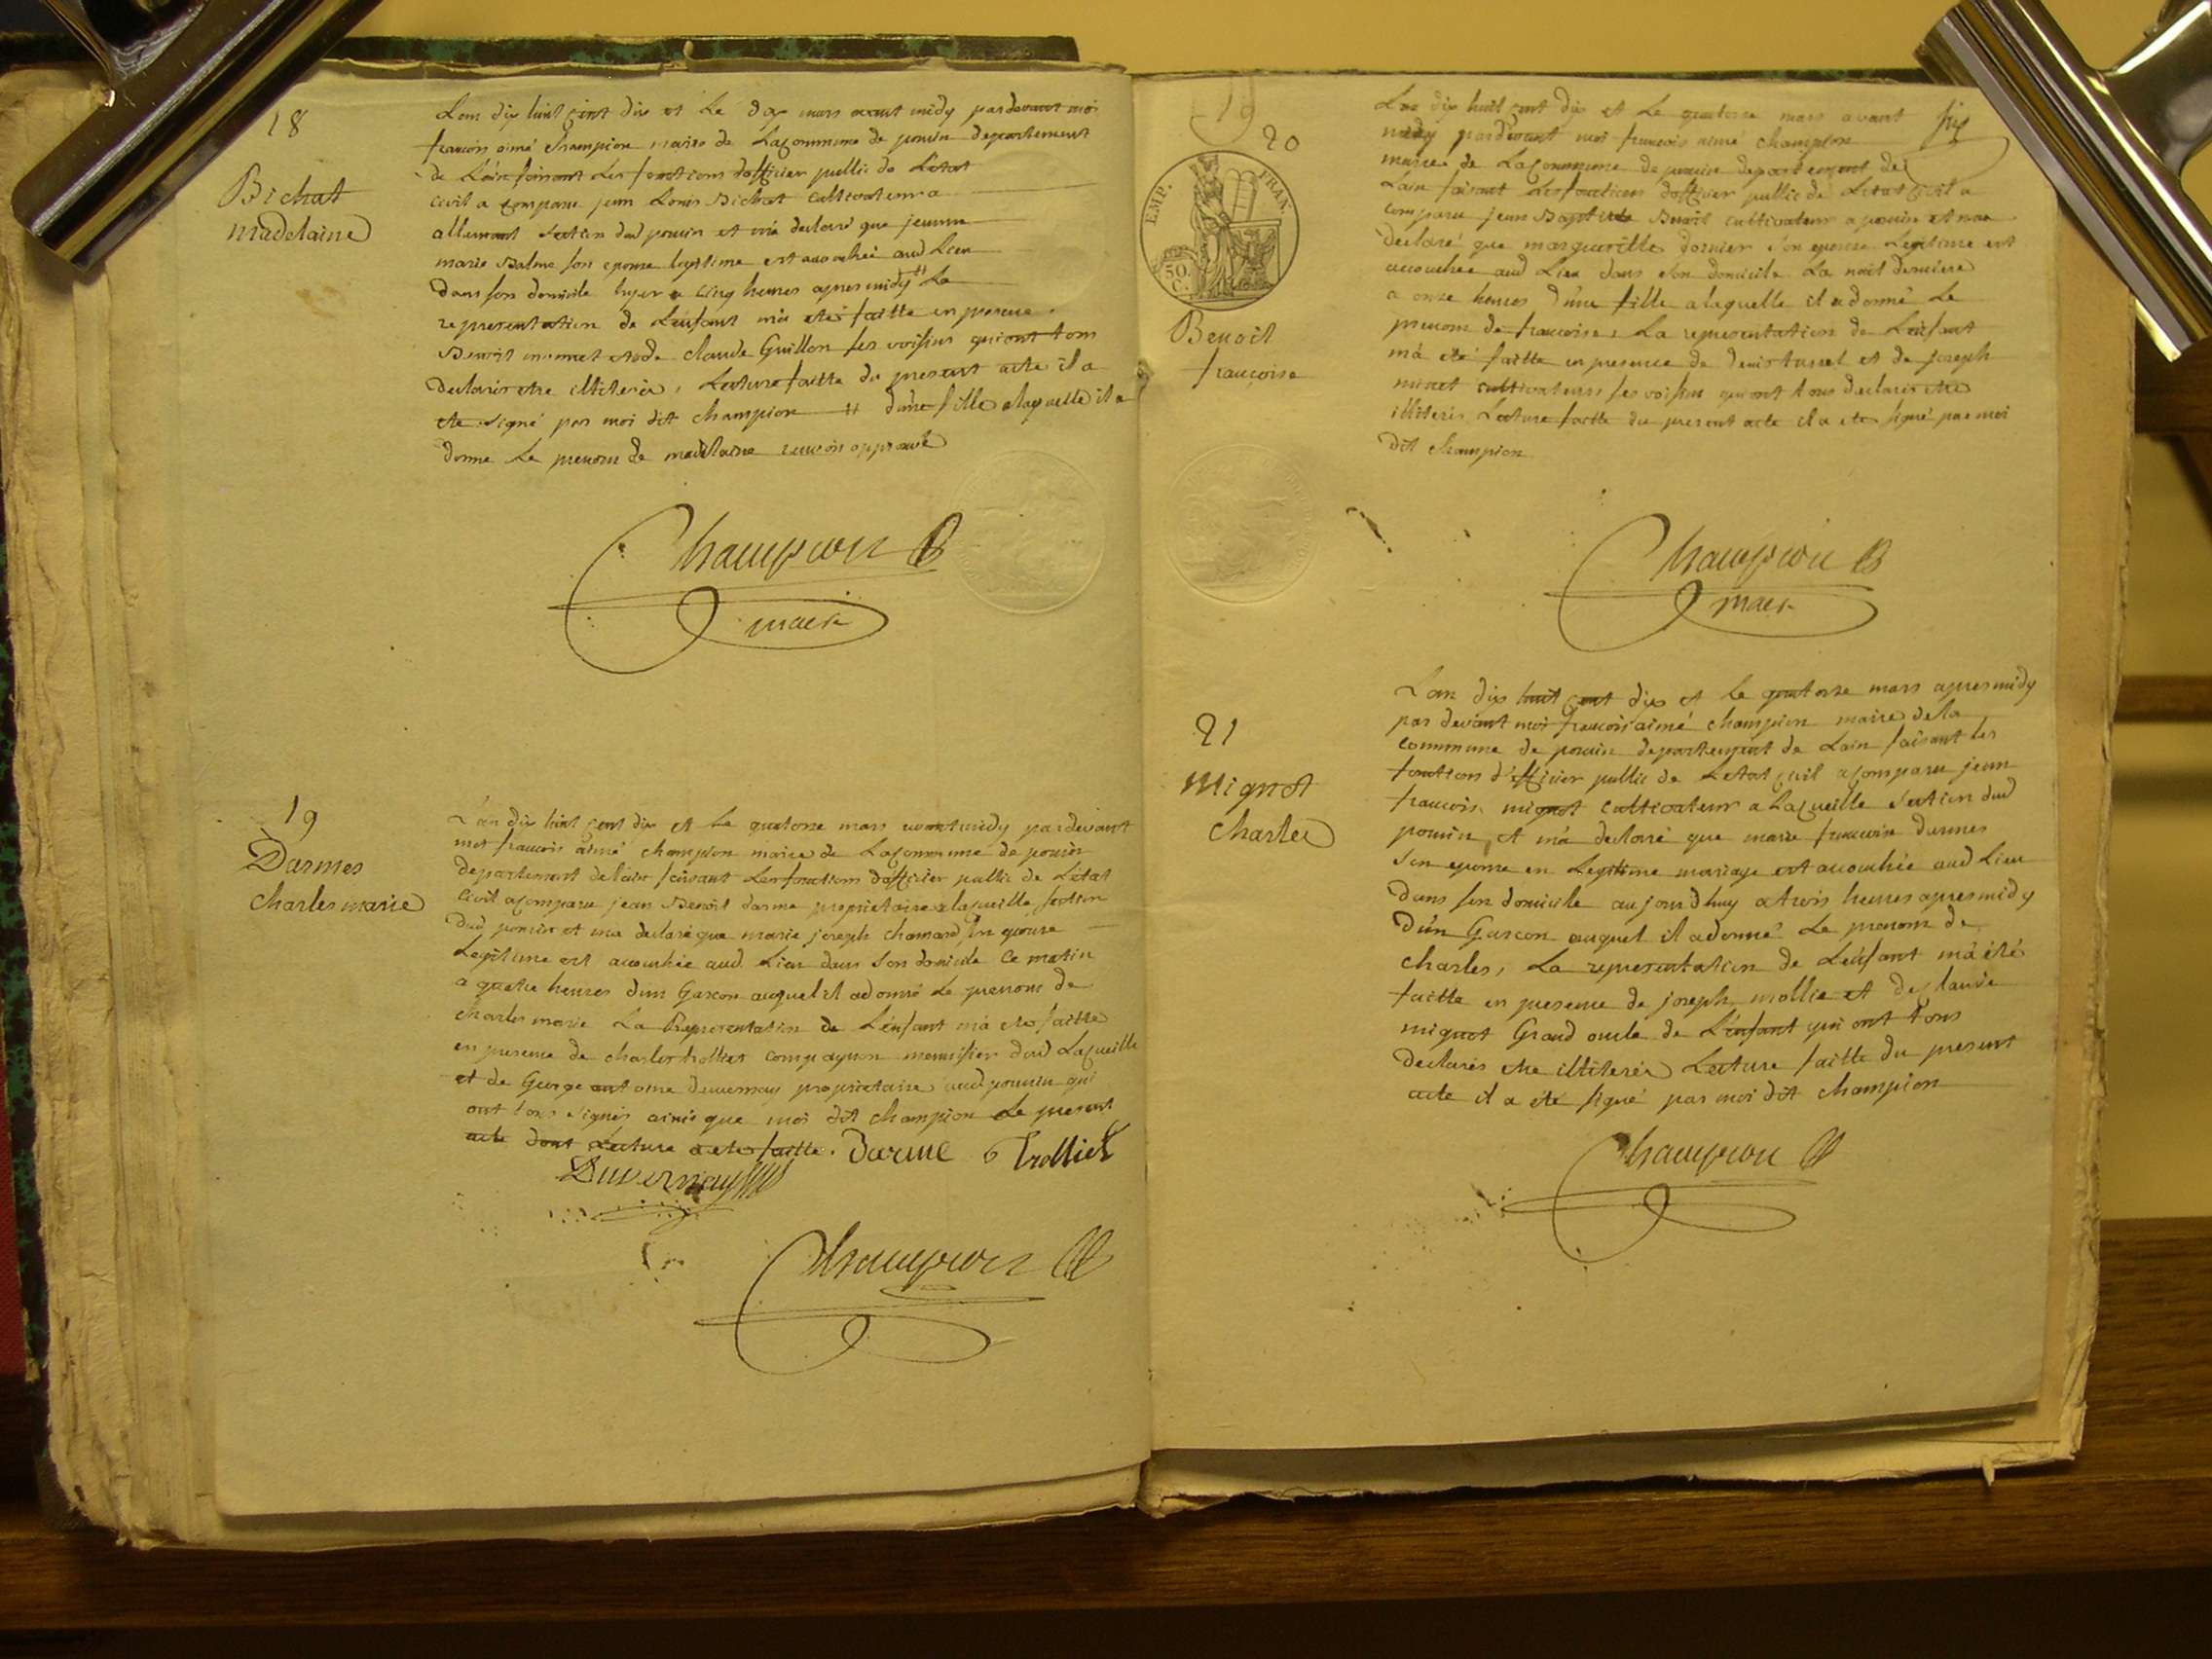 18
Bichat
madelaine
Lan dix huit cent dix et Le dix mars avant midy pardevant moi
francois aimé champion maire de La commune de pouin departement
de Lain faisant Les fonctions dofficier public de Létat
civil a comparu jean Louis Bichat cultivateur a
allemant section dud pouin et m'a declaré que jeanne
marie Balme son epouse legitime est accouchée aud Lieu
Dans son domicile hyer a cinq heures apres midy # La
representation de Lenfant m'a eté faitte en presence
Benoit et de claude Guillon ses voisins qui ont tous
declarés etre illiterés, Lecture faitte du present acte il a
ete signé par moi dit champion # d'une fille a laquelle il a
donné Le prenom de madelaine renvoi approuvé
Champion
maire
19
Darmes
charles marie
L'an dix huit cent dix et Le quatorze mars avant midy pardevant
moi francois aimé champion maire de La commune de pouin
departement de lain faisant Les fonctions dofficier public de Létat
civil a comparu jean Benoit darme proprietaire a lacueille section
dud pouin et ma declaré que marie joseph chamard son epouse
Legitime est accouchée aud. Lieu dans son domicile ce matin
a quatre heures dun Garcon auquel il a donné Le prenom de
charles marie La Representation de Lénfant m'a eté faitte
en presence de charles trolliet compagnon menuisier dud Lacueille
et de George antoine duvernay proprietaire aud pouin qui
ont tous signés ainsi que moi dit champion Le present
acte dont Lecture a eté faitte. Darme Trolliet
Duvernay
Champion
19
20
Benoit
francoise
EMP. FRAN.
50. C.
Lan dix huit cent dix et Le quatorze mars avant
midy pardevant moi francois aimé champion
maire de La commune de pouin departement de
Lain faisant Les fonctions dofficier public de Létat civil a
comparu jean Baptiste Benoit cultivateur a pouin et m'a
declaré que margueritte dornier son epouse Legitime est
accouchée aud Lieu dans son domicile La nuit derniere
a onze heures d'une fille a laquelle il a donné Le
prenom de francoise, La representation de Lénfant
m'a été faitte en presence de denis tassel et de joseph
cultivateurs ses voisins qui ont tous declarés etre
illiterés Lecture faitte du present acte il a ete signé par moi
dit champion
Champion
maire
21
Mignot
charles
Lan dix huit cent dix et le quatorze mars apres midy
par devant moi francois aimé champion maire de la
commune de pouin departement de Lain faisant les
fonctions d'officier public de Létat civil a comparu jean
francois mignot cultivateur a Lacueille section dud
pouin, et m'a declaré que marie francoise darmes
son epouse en Legitime mariage est accouchée aud Lieu
dans son domicile au jourdhuy a trois heures apres midy
d'un Garcon auquel il a donné Le prenom de
charles, La representation de Lénfant m'a été
faitte en presence de joseph mollie et de claude
mignot Grand oncle de L'enfant qui ont tous
declarés etre illiterés Lecture faitte du present
acte il a été signé par moi dit champion
Champion